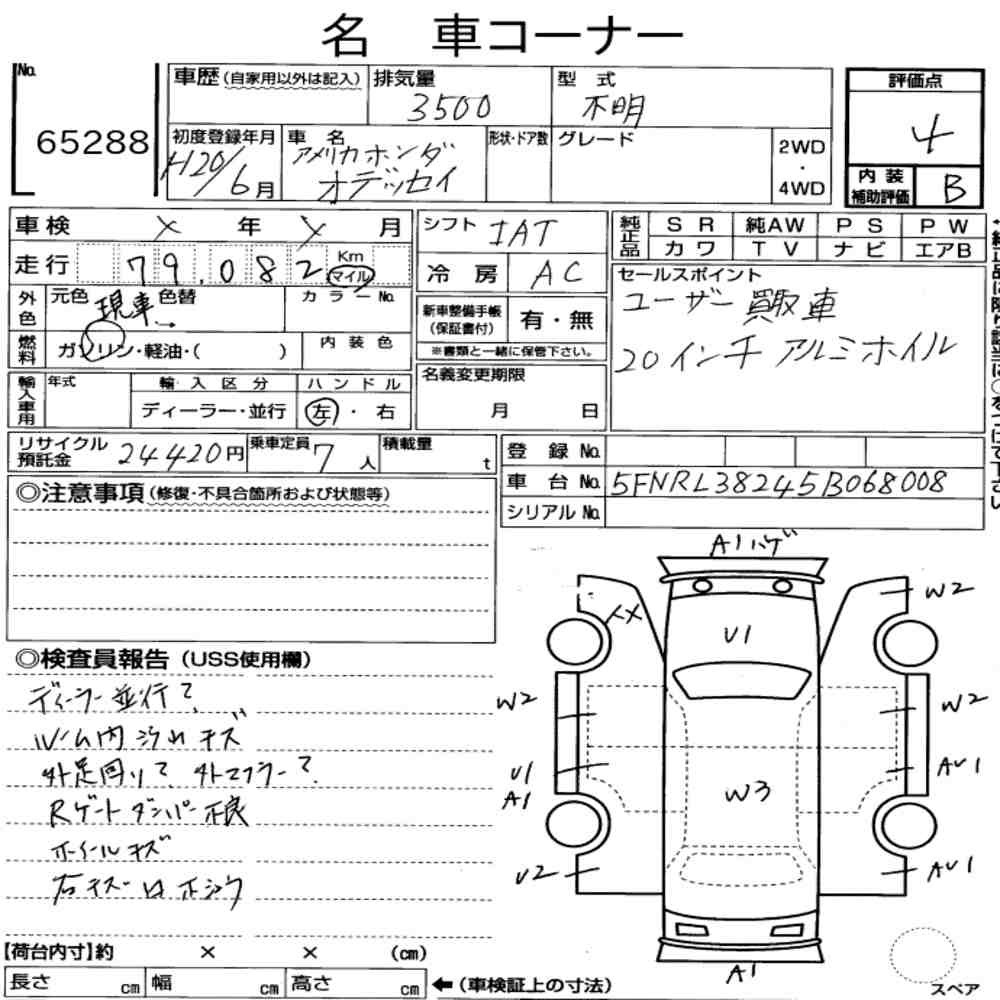 名 車コーナー
No.
65288
車歴(自家用以外は記入)
排気量
3500
型 式
不明
評価点
4
初度登録年月
H20/6月
車 名
アメリカホンダ
オデッセイ
形状・ドア数
グレード
2WD
・
4WD
内 装
補助評価
B
車検 X 年 X 月
シフト
IAT
純正品
SR 純AW PS PW
カワ TV ナビ エアB
走行 79,082
Km
マイル
冷房
AC
セールスポイント
ユーザー買取車
20インチ アルミホイル
外色
元色
現車
色替
カラーNo.
新車整備手帳
(保証書付)
有・無
※書類と一緒に保管下さい。
燃料
ガソリン・軽油・( )
内装色
輸入車用
年式
輸入区分
ディーラー・並行
ハンドル
左・右
名義変更期限
月 日
リサイクル
預託金
24420円
乗車定員
7人
積載量
t
登録 No.
車台 No. 5FNRL38245B068008
シリアル No.
◎注意事項(修復・不具合箇所および状態等)
◎検査員報告(USS使用欄)
ディーラー並行?
ルーム内汚れ キズ
外足回り? 外マフラー?
Rゲートダンパー不良
ホイールキズ
A1ハゲ
W2
XX
U1
W2
W2
U1
A1
W3
AU1
U2
AU1
A1
【荷台内寸】約 × × (cm)
長さ cm 幅 cm 高さ cm
←(車検証上の寸法)
スペア